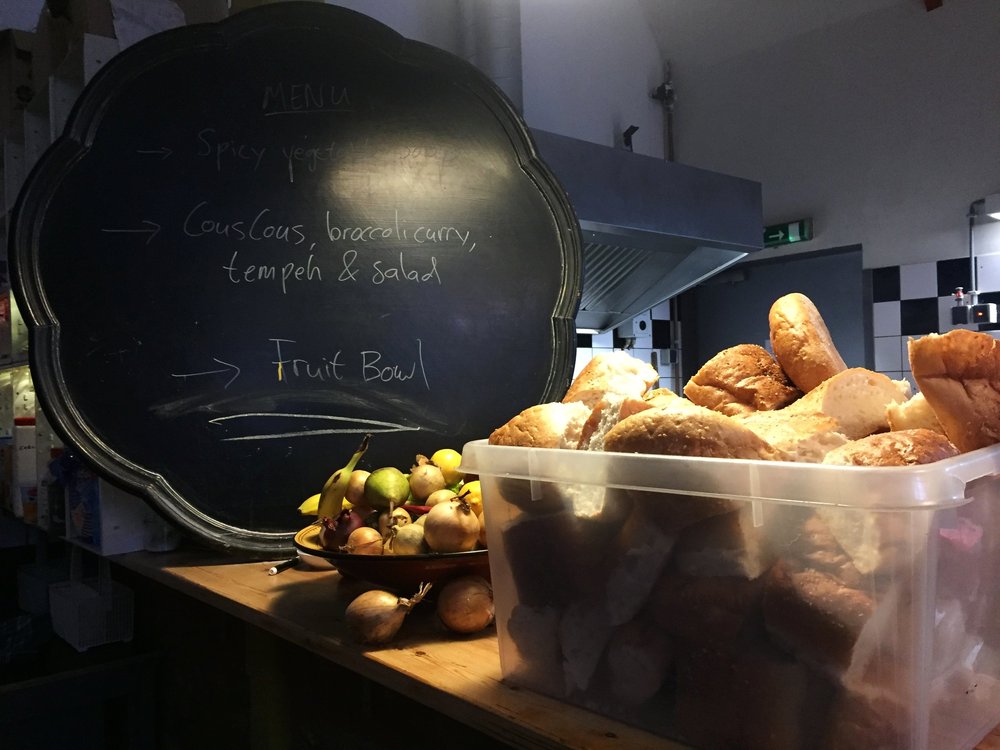 MENU
→ Spicy vegetable soup
→ CousCous, braccoli curry,
tempeh & salad
→ Fruit Bowl